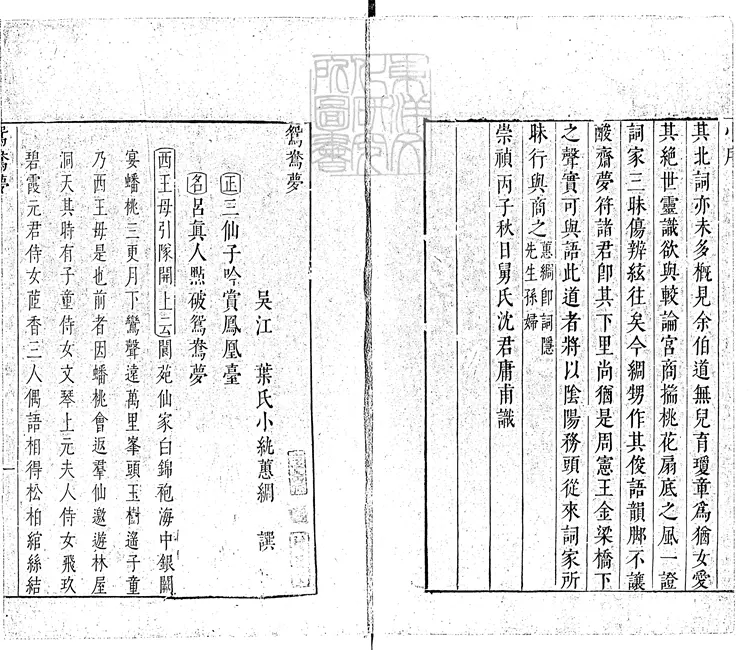 其北詞亦未多概見余伯道無兒育瓊章爲猶女愛
其絕世靈識欲與較論宮商搊桃花扇底之風一證
詞家三昧傷辨絃往矣今綢甥作其俊語韻腳不讓
酸齋夢符諸君卽其下里尚猶是周憲王金梁橋下
之聲實可與語此道者將以陰陽務頭從來詞家所
昧行與商之蕙綢卽詞隱
先生孫婦
崇禎丙子秋日舅氏沈君庸甫識
東洋文化研究所圖書
鴛鴦夢
吳江 葉氏小紈蕙綢 譔
正 三仙子吟賞鳳凰臺
名 呂眞人點破鴛鴦夢
西王母引隊開上云閬苑仙家白錦袍海中銀闕
宴蟠桃三更月下鸞聲遠萬里峯頭玉樹遙子童
乃西王毋是也前者因蟠桃會返羣仙邀遊林屋
洞天其時有子童侍女文琴上元夫人侍女飛玖
碧霞元君侍女茝香三人偶語相得松柏綰絲結
鴛鴦夢
一